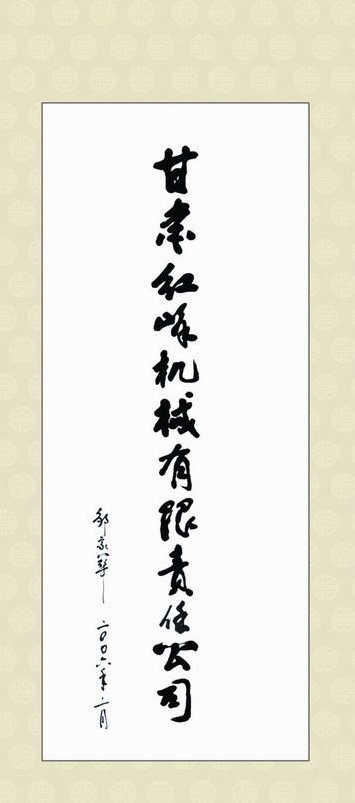 甘肃红峰机械有限责任公司
邹家华
二〇〇六年二月